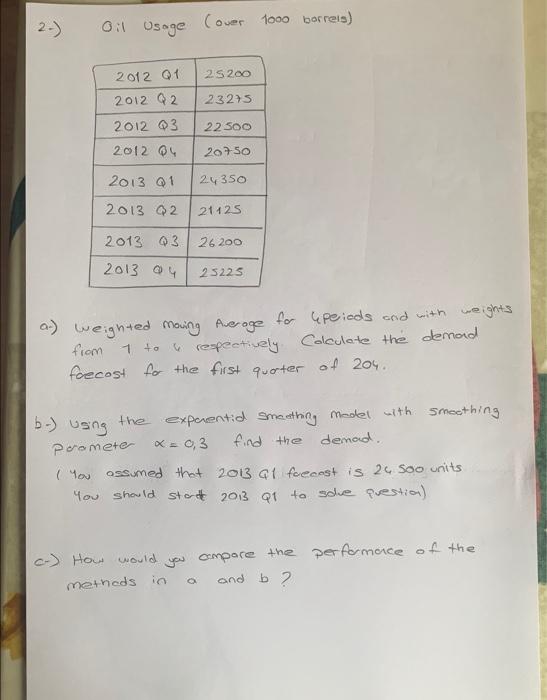 2-) Oil Usage (over 1000 barrels)
2012 Q1 25200
2012 Q2 23275
2012 Q3 22500
2012 Q4 20750
2013 Q1 24350
2013 Q2 21125
2013 Q3 26200
2013 Q4 25225
a-) Weighted Moving Average for 4 periods and with weights
from 1 to 4 respectively. Calculate the demand
foecost for the first quarter of 204.
b-) Using the exponential smoothing model with smoothing
parameter α = 0,3 find the demand.
( You assumed that 2013 Q1 forecast is 24 500 units
You should start 2013 Q1 to solve question)
c-) How would you compare the performance of the
methods in a and b ?